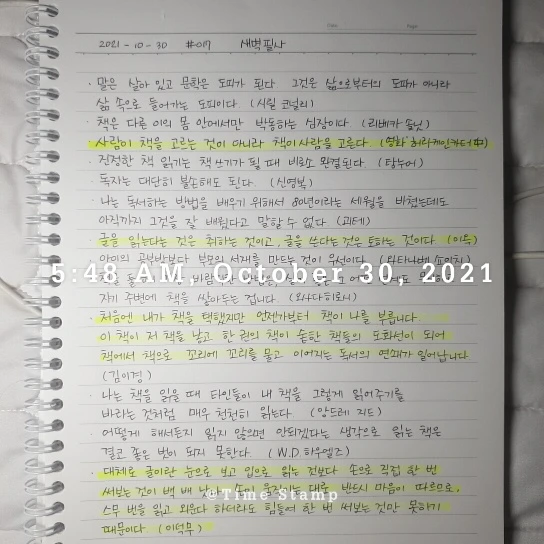 Date. Page.
2021-10-30 #019 새벽필사
· 말은 살아 있고 문학은 도피가 된다. 그것은 삶으로부터의 도피가 아니라
삶 속으로 들어가는 도피이다 (시릴 코널리)
· 책은 다른 이의 몸 안에서만 박동하는 심장이다. (리베카 솔닛)
사람이 책을 고르는 것이 아니라 책이 사람을 고른다. (영화 허리케인 카터 中)
· 진정한 책 읽기는 책 쓰기가 될 때 비로소 완결된다. (탕누어)
· 독자는 대단히 불손해도 된다. (신영복)
· 나는 독서하는 방법을 배우기 위해서 80년이라는 세월을 바쳤는데도
아직까지 그것을 잘 배웠다고 말할 수 없다 (괴테)
· 글을 읽는다는 것은 취하는 것이고, 글을 쓰다는 것은 토하는 것이다 (이욱)
· 아이의 공부방보다 부모의 서재를 만드는 것이 우선이다 (와타나베 쇼이치)
5:48 AM, October 30, 2021
자기 주변에 책을 쌓아두는 겁니다. (오사다 히로시)
· 처음엔 내가 책을 택했지만 언제가부터 책이 나를 부릅니다.
이 책이 저 책을 낳고 한 권의 책이 숱한 책들의 도화선이 되어
책에서 책으로 꼬리에 꼬리를 물고 이어지는 독서의 연쇄가 일어납니다
(김이경)
· 나는 책을 읽을 때 타인들이 내 책을 그렇게 읽어주기를
바라는 것처럼 매우 천천히 읽는다. (앙드레 지드)
· 어떻게 해서든지 읽지 않으면 안되겠다는 생각으로 읽는 책은
결코 좋은 벗이 되지 못한다. (W.D.하우엘즈)
· 대체로 글이란 눈으로 보고 입으로 읽는 것보다 손으로 직접 한 번
써보는 것이 백 배 낫다. 손이 움직이는 대로 반드시 마음이 따르므로,
@Time Stamp
스무 번을 읽고 외운다 하더라도 힘들여 한 번 써보는 것만 못하기
때문이다 (이덕무)